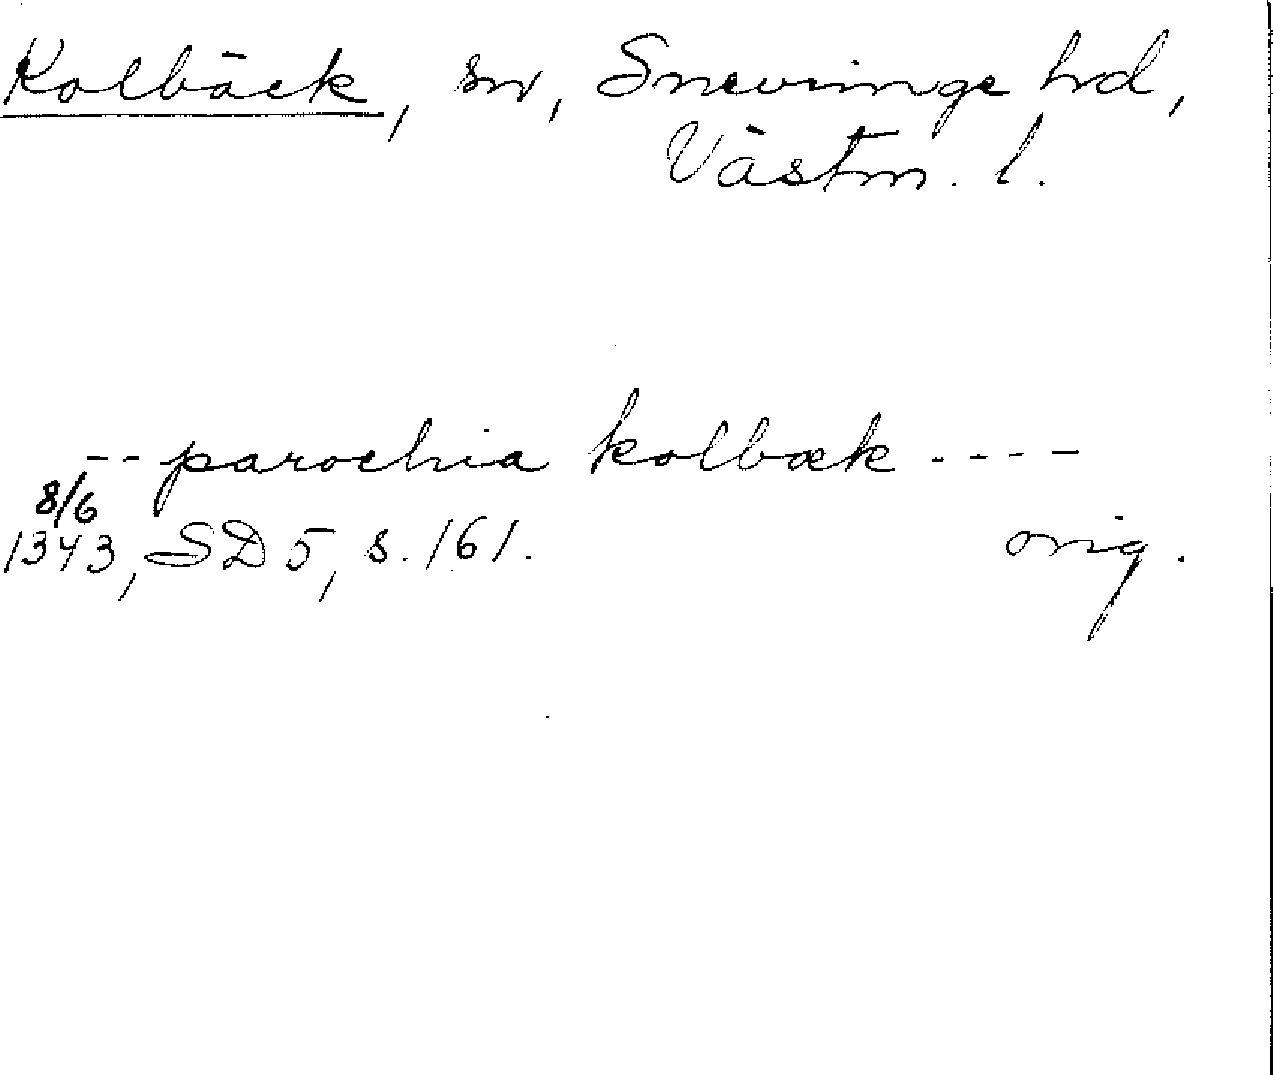 Kolbäck, sn, Snevringe hd,
Västm. l.
-- parochia kolbæk ----
8/6
1343, SD 5, s. 161. orig.